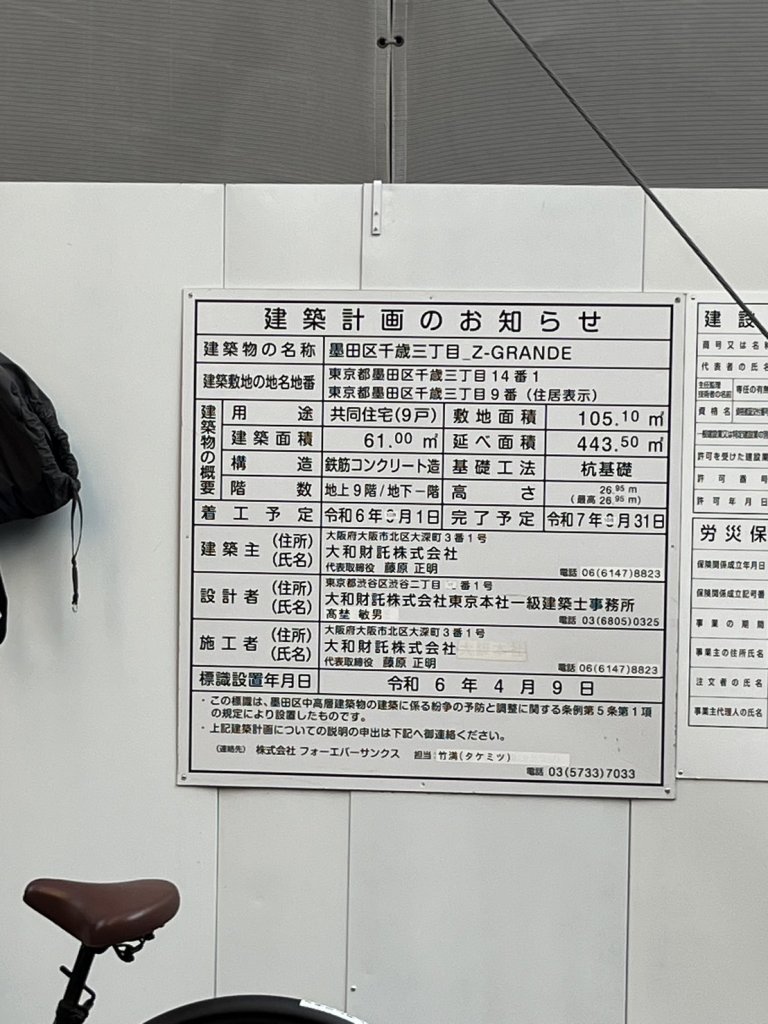 建築計画のお知らせ
建築物の名称 墨田区千歳三丁目_Z-GRANDE
建築敷地の地名地番 東京都墨田区千歳三丁目14番1
東京都墨田区千歳三丁目9番（住居表示）
建築物の概要
用途 共同住宅(9戸) 敷地面積 105.10㎡
建築面積 61.00㎡ 延べ面積 443.50㎡
構造 鉄筋コンクリート造 基礎工法 杭基礎
階数 地上9階/地下－階 高さ 26.95m
(最高26.95m)
着工予定 令和6年 月1日 完了予定 令和7年 月31日
建築主 (住所) 大阪府大阪市北区大深町3番1号
(氏名) 大和財託株式会社
代表取締役 藤原 正明
電話 06(6147)8823
設計者 (住所) 東京都渋谷区渋谷二丁目 番1号
(氏名) 大和財託株式会社東京本社一級建築士事務所
髙埜 敏男
電話 03(6805)0325
施工者 (住所) 大阪府大阪市北区大深町3番1号
(氏名) 大和財託株式会社
代表取締役 藤原 正明
電話 06(6147)8823
標識設置年月日 令和6年4月9日
・この標識は、墨田区中高層建築物の建築に係る紛争の予防と調整に関する条例第5条第1項
の規定により設置したものです。
・上記建築計画についての説明の申出は下記へ御連絡ください。
（連絡先） 株式会社 フォーエバーサンクス 担当:竹溝(タケミツ)
電話 03(5733)7033
建設
商号又は名称
代表者の氏名
主任監理
技術者の氏名 専任の有無
資格名
許可を受けた建設業
許可番号
許可年月日
労災保
保険関係成立年月日
保険関係成立記号番
事業の期間
事業主の住所氏名
注文者の氏名
事業主代理人の氏名